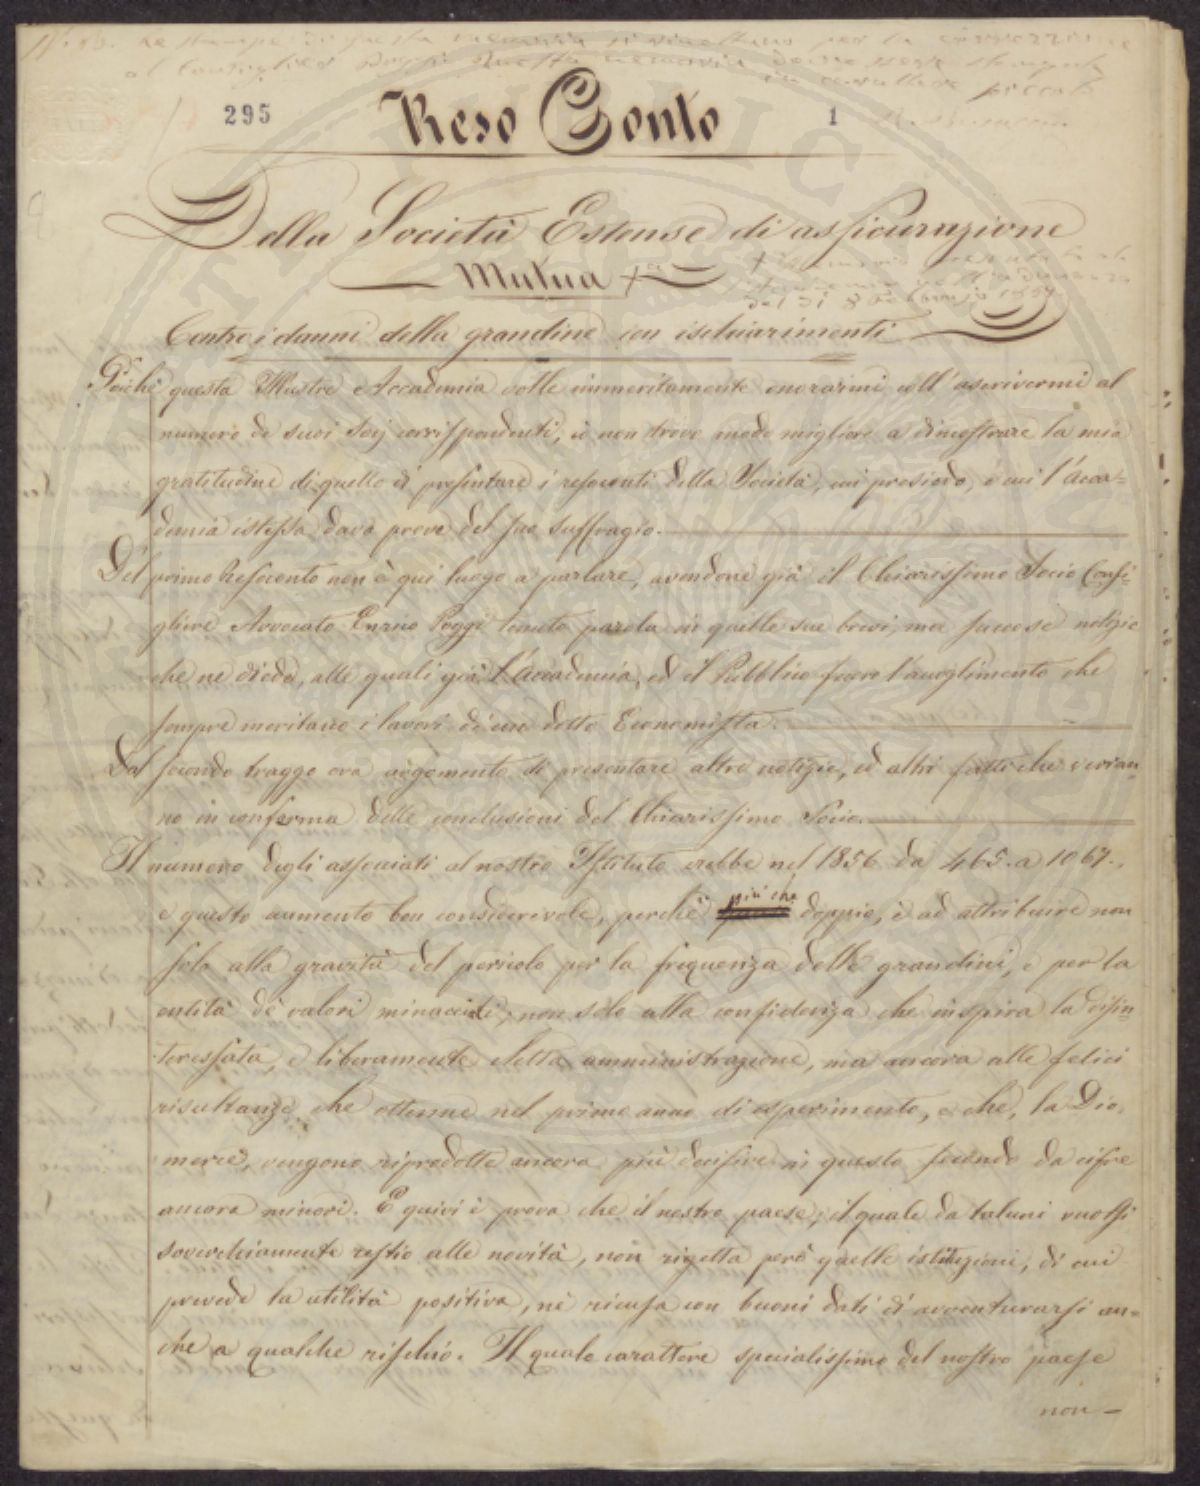 N.B. le stampe di questa memoria si rimettano per la correzione
al Consigliere Poggi. Questa memoria deve essere stampata
in carattere piccolo
295
1
Reso Conto
Della Società Estense di assicurazione
Mutua +
del dì 8 1857
Contro i danni della grandine con ischiarimenti
Poichè questa Illustre Accademia volle immeritamente onorarmi coll'ascrivermi al
numero de suoi Socj corrispondenti, io non trovo modo migliore a dimostrare la mia
gratitudine di quello di presentare i resoconti della Società, cui presiedo, e cui l'Acca=
demia istessa dava prova del suo suffragio.
Del primo Resoconto non è qui luogo a parlare, avendone già il Chiarissimo Socio Consi=
gliere Avvocato Enrico Poggi tenuto parola in quelle sue brevi, ma succose notizie
che ne diede, alle quali già l'Accademia, ed il Pubblico fecero l'accoglimento che
sempre meritano i lavori di un dotto Economista.
Dal secondo traggo ora argomento di presentare altre notizie, ed altri fatti che verran=
no in conferma delle conclusioni del Chiarissimo Socio.
Il numero degli associati al nostro Istituto crebbe nel 1856 da 465. a 1067.,
e questo aumento ben considerevole, perchè più che doppio, è ad attribuire non
solo alla gravità del pericolo per la frequenza delle grandini, e per la
entità de valori minacciati, non solo alla confidenza che inspira la disin=
teressata, e liberamente eletta amministrazione, ma ancora alle felici
risultanze che ottenne nel primo anno di esperimento, e che, la Dio
mercè, vengono riprodotte ancora più decisive in questo secondo da cifre
ancora minori. E quivi è prova che il nostro paese, il quale da taluni vuolsi
soverchiamente restio alle novità, non rigetta però quelle istituzioni, di cui
prevede la utilità positiva, nè ricusa con buoni dati di avventurarsi an=
che a qualche rischio. Il quale carattere specialissimo del nostro paese
non=